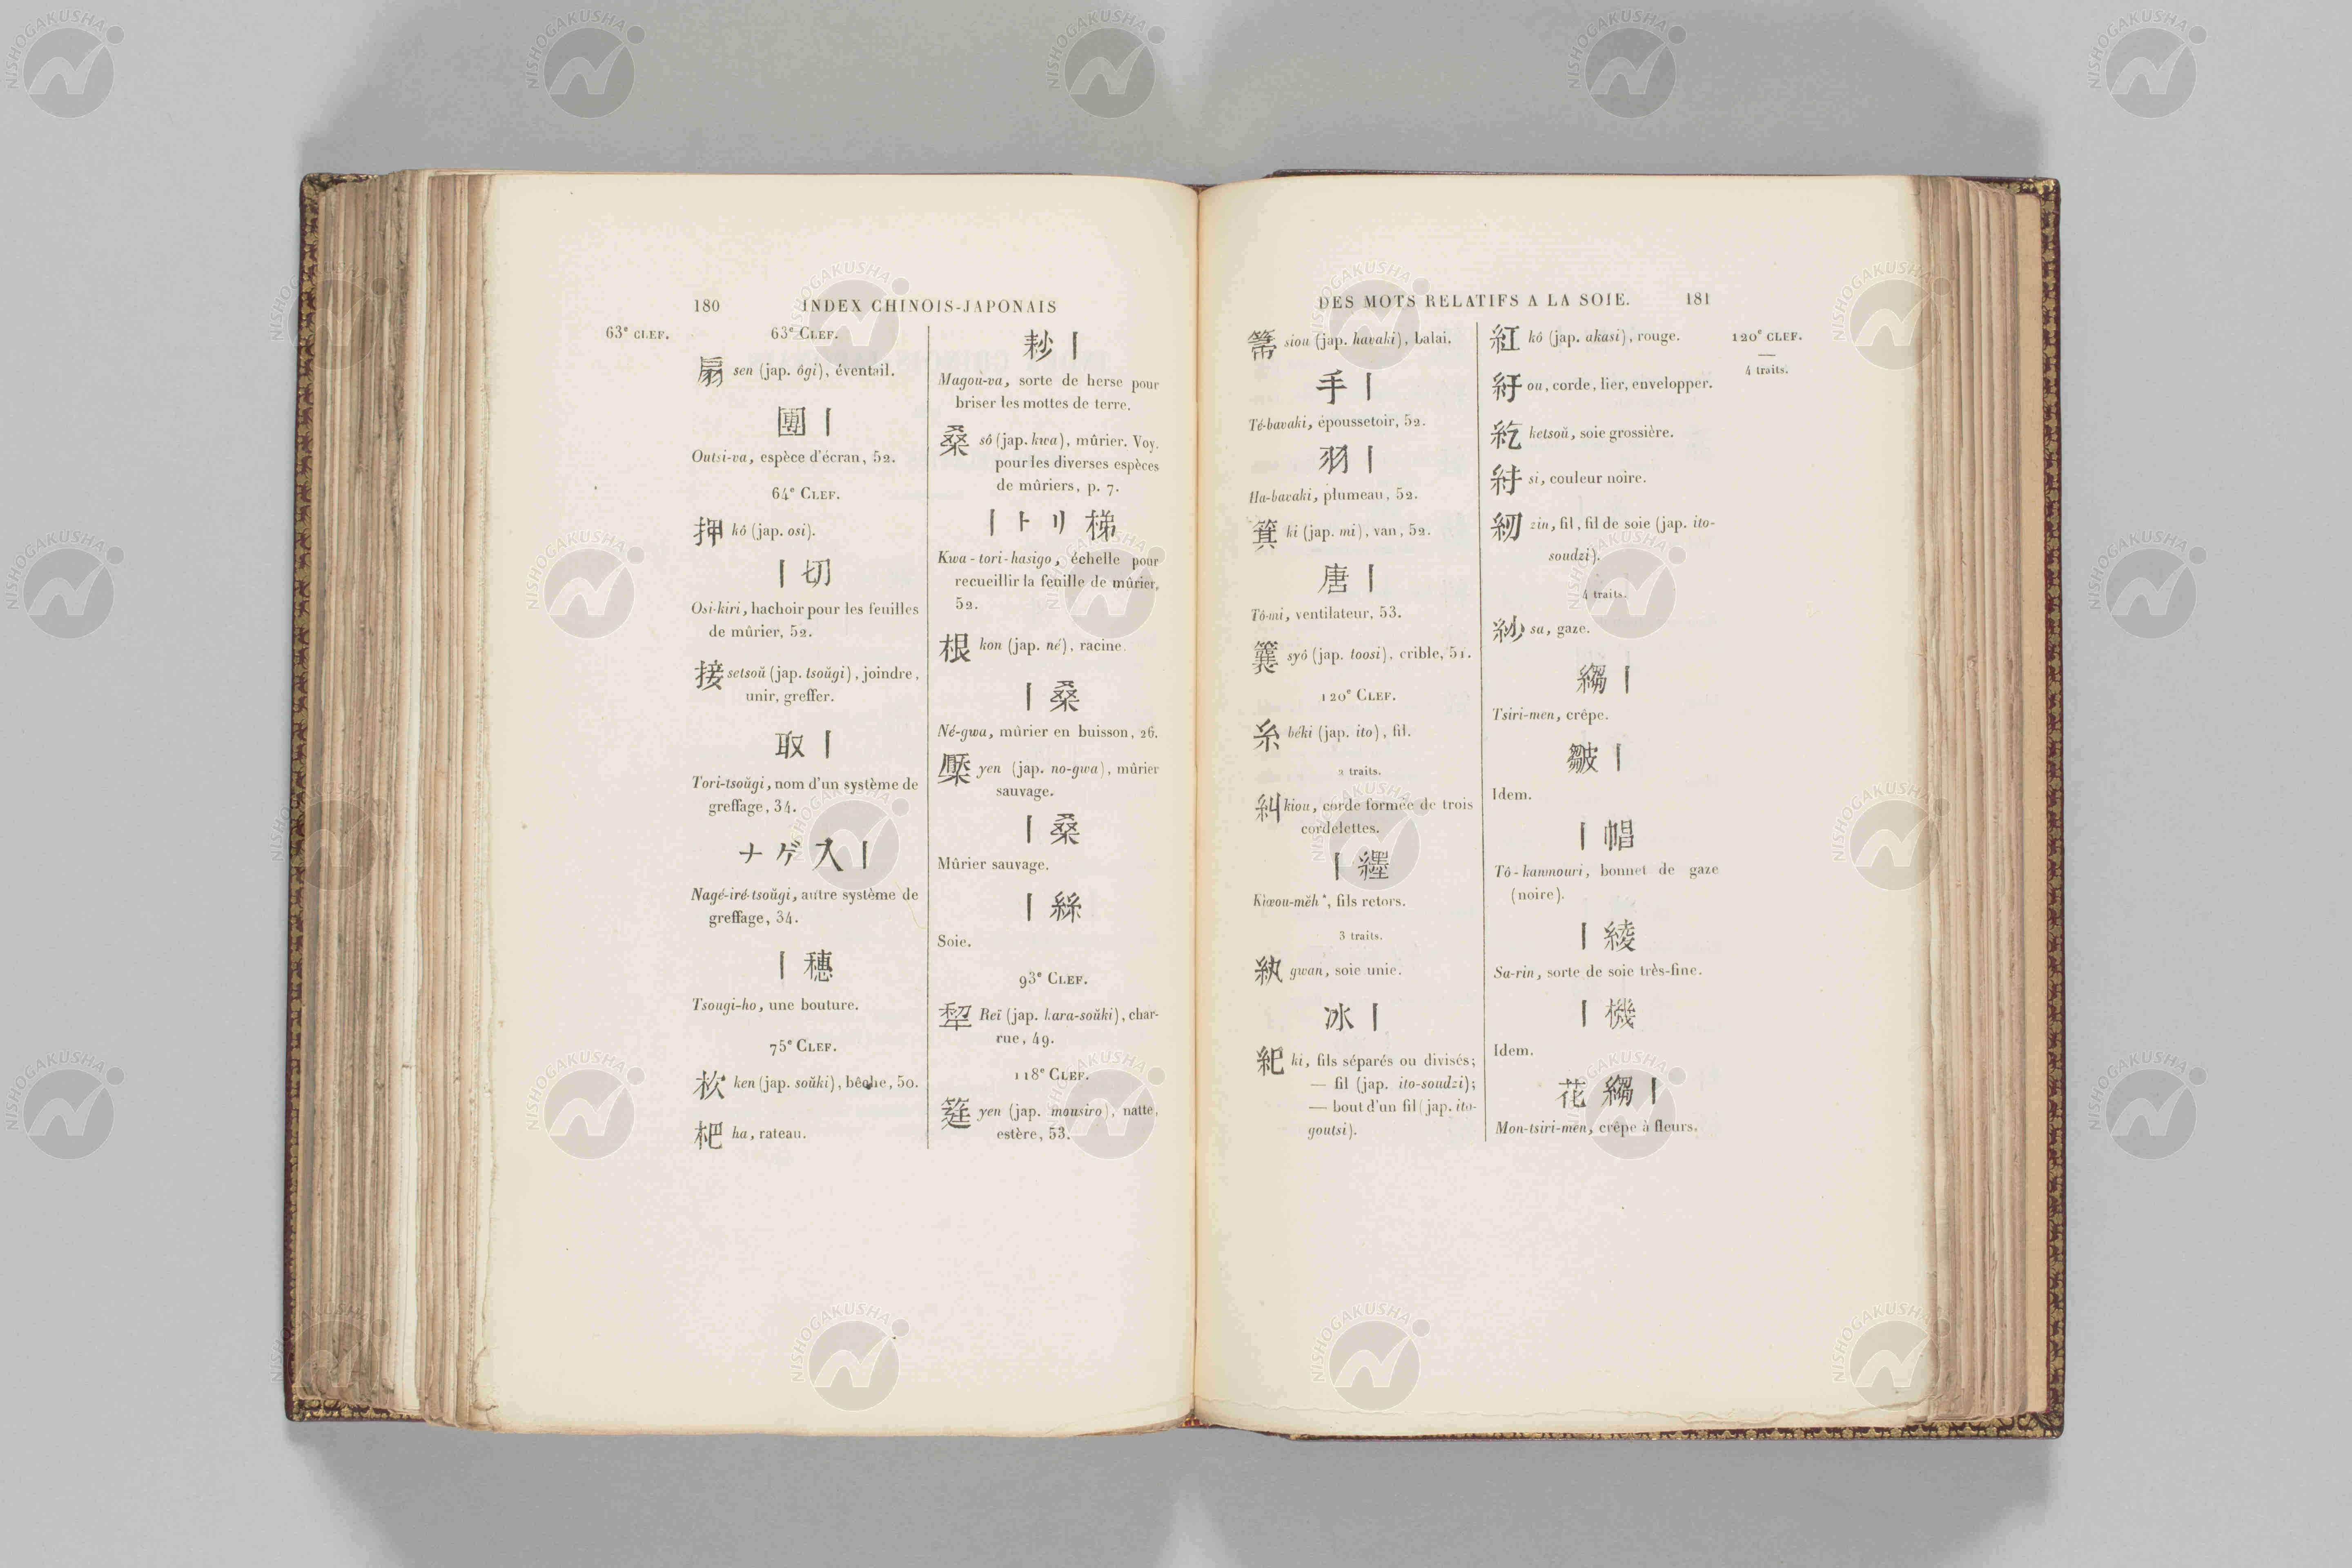 180 INDEX CHINOIS-JAPONAIS
63e CLEF.
63e CLEF.
扇 sen (jap. ôgi), éventail.
團 |
Outsi-va, espèce d'écran, 52.
64e CLEF.
押 kô (jap. osi).
| 切
Osi-kiri, hachoir pour les feuilles
de mûrier, 52.
接 setsoŭ (jap. tsoŭgi), joindre,
unir, greffer.
取 |
Tori-tsoŭgi, nom d'un système de
greffage, 34.
ナゲ入 |
Nagé-iré-tsoŭgi, autre système de
greffage, 34.
| 穗
Tsougi-ho, une bouture.
75e CLEF.
杴 ken (jap. soŭki), bêche, 50.
杷 ha, rateau.
耖 |
Magoù-va, sorte de herse pour
briser les mottes de terre.
桑 sô (jap. kwa), mûrier. Voy.
pour les diverses espèces
de mûriers, p. 7.
| トリ 梯
Kwa-tori-hasigo, échelle pour
recueillir la feuille de mûrier,
52.
根 kon (jap. né), racine.
| 桑
Né-gwa, mûrier en buisson, 26.
檿 yen (jap. no-gwa), mûrier
sauvage.
| 桑
Mûrier sauvage.
| 絲
Soie.
93e CLEF.
犂 Reï (jap. kara-soŭki), char-
rue, 49.
118e CLEF.
筵 yen (jap. mousiro), natte,
estère, 53.
DES MOTS RELATIFS A LA SOIE. 181
箒 siou (jap. havaki), balai.
手 |
Té-bavaki, époussetoir, 52.
羽 |
Ha-bavaki, plumeau, 52.
箕 ki (jap. mi), van, 52.
唐 |
Tô-mi, ventilateur, 53.
syô (jap. toosi), crible, 51.
120e CLEF.
糸 béki (jap. ito), fil.
2 traits.
糾 kiou, corde formée de trois
cordelettes.
| 纆
Kieou-mĕh*, fils retors.
3 traits.
紈 gwan, soie unie.
冰 |
紀 ki, fils séparés ou divisés;
— fil (jap. ito-soudzi);
— bout d'un fil (jap. ito-
goutsi).
紅 kô (jap. akasi), rouge.
紆 ou, corde, lier, envelopper.
紇 ketsoŭ, soie grossière.
紂 si, couleur noire.
紉 zin, fil, fil de soie (jap. ito-
soudzi).
4 traits.
紗 sa, gaze.
縐 |
Tsiri-men, crêpe.
皺 |
Idem.
| 帽
Tô-kammouri, bonnet de gaze
(noire).
| 綾
Sa-rin, sorte de soie très-fine.
| 機
Idem.
花 縐 |
Mon-tsiri-men, crêpe à fleurs.
120e CLEF.
—
4 traits.